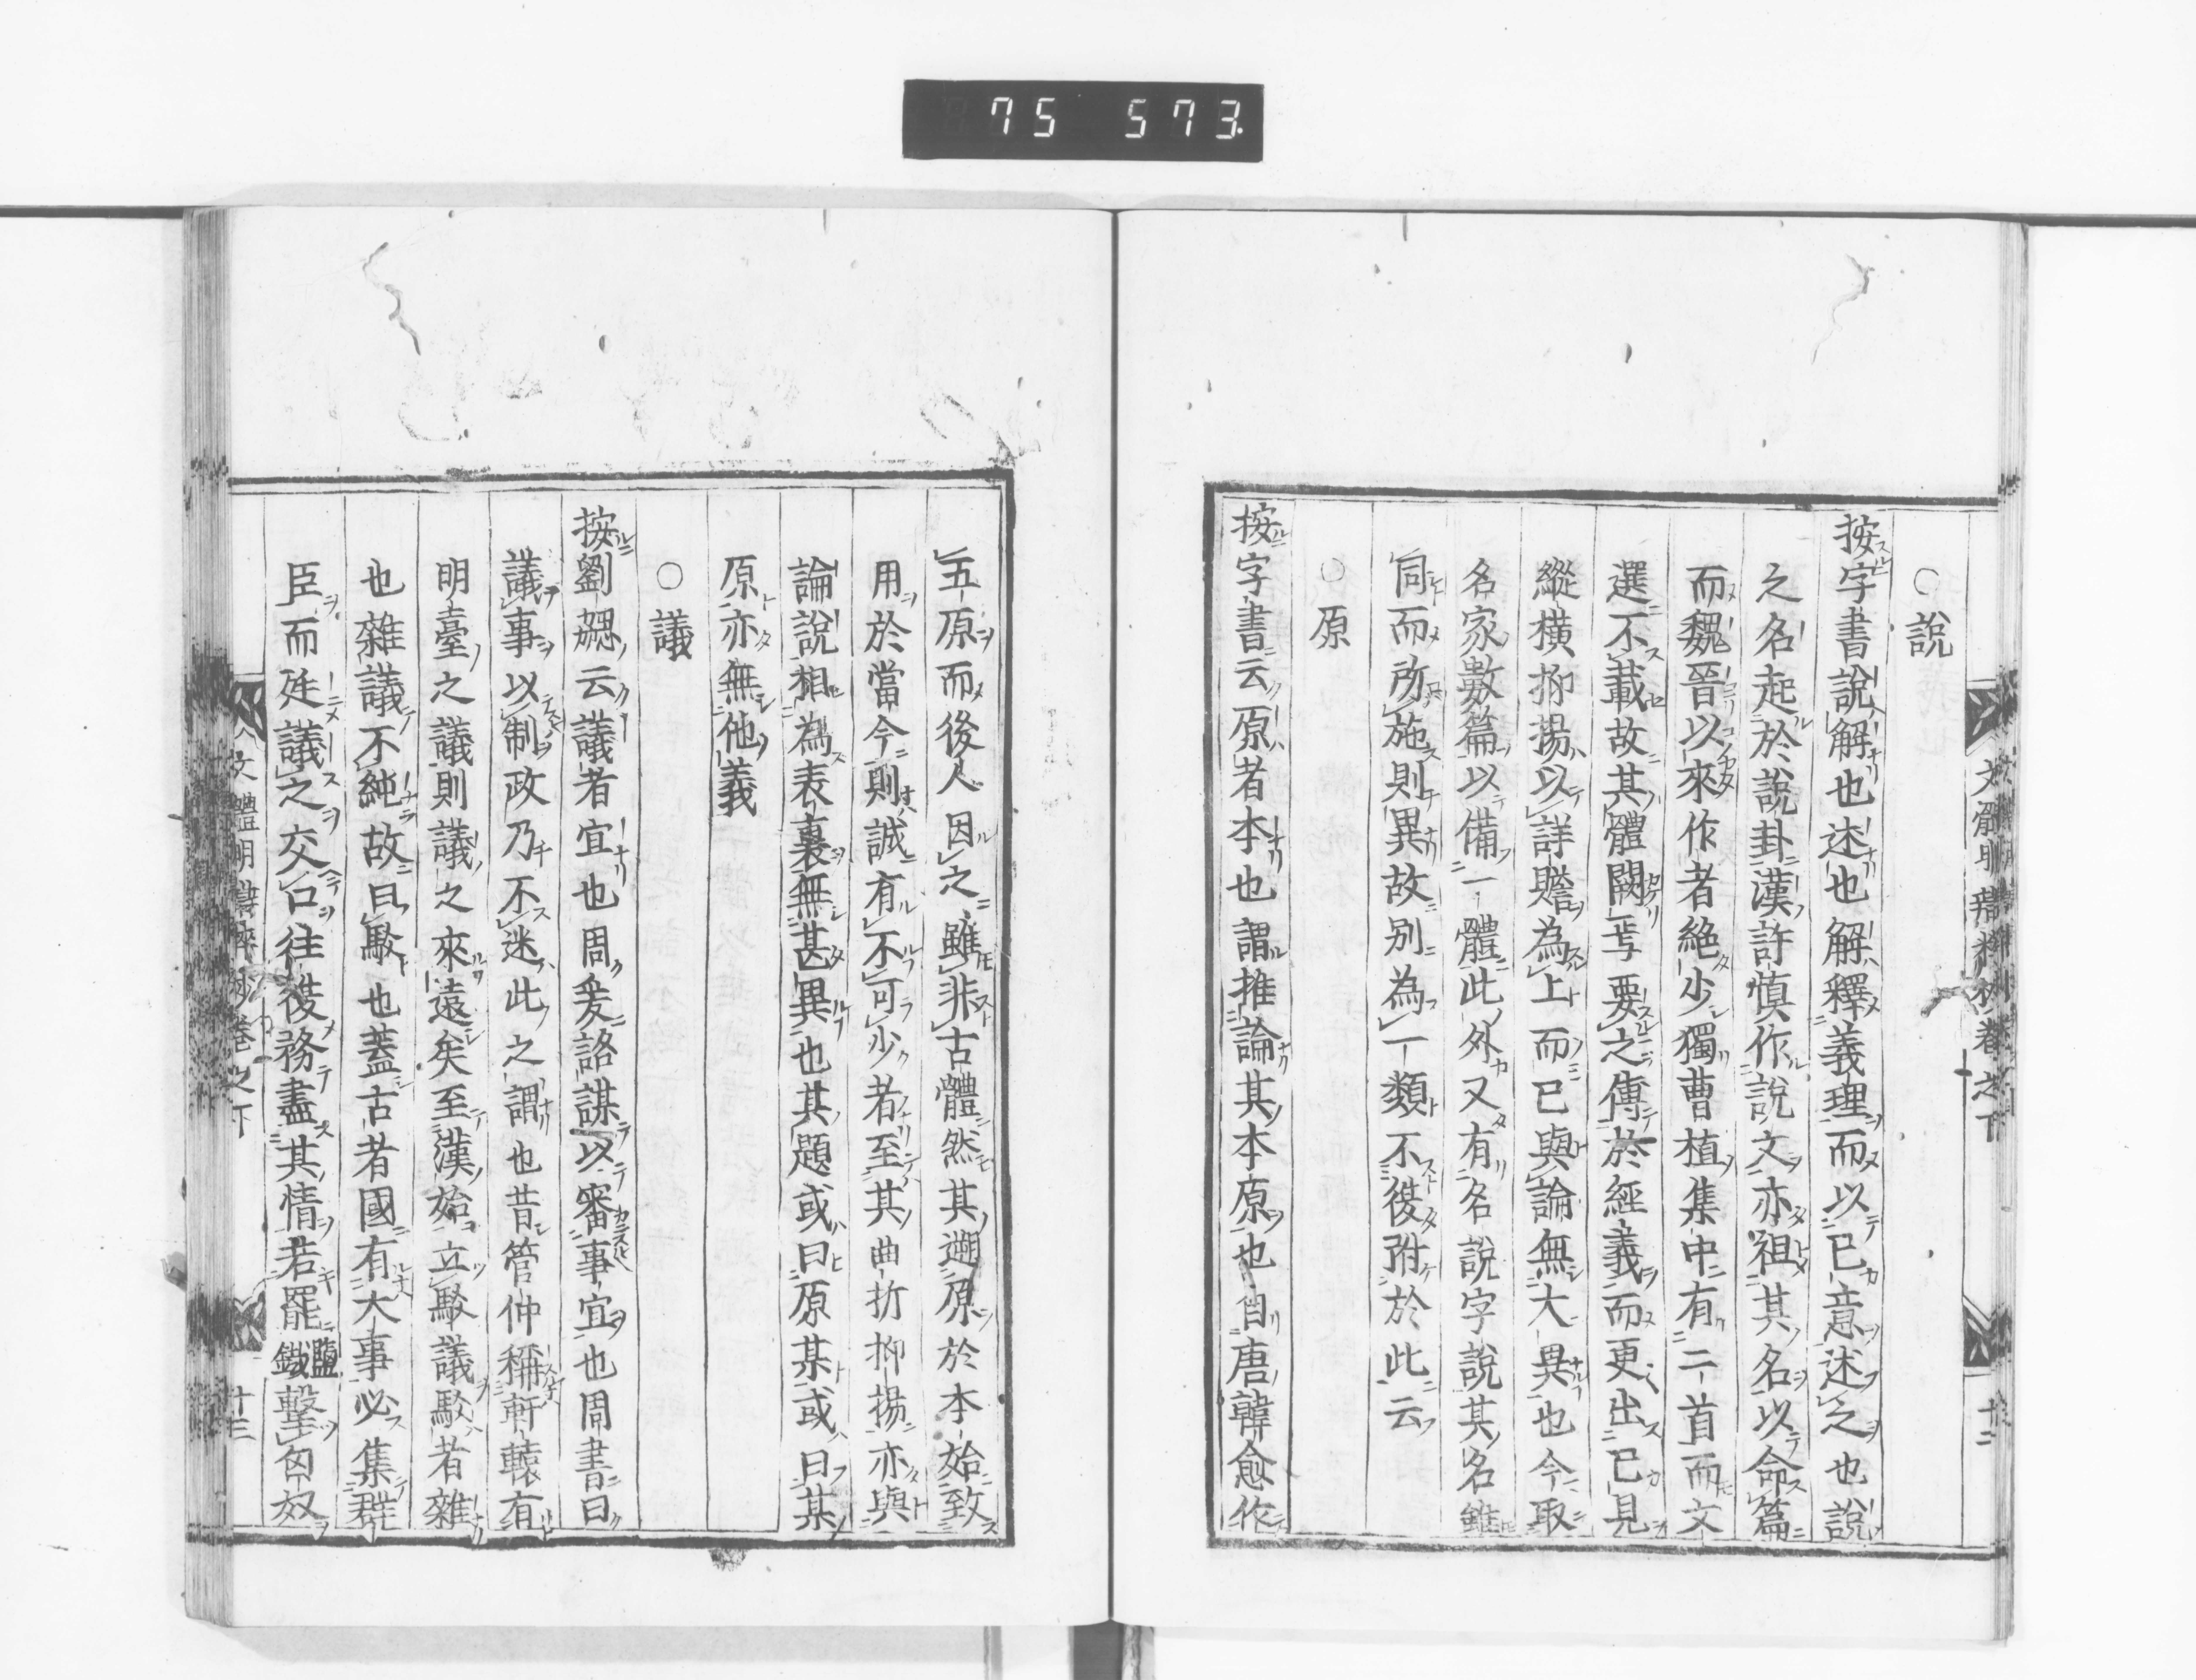 75 573.
○說
按字書說解也述也解釋義理而以已意述之也說
之名起於說卦漢許慎作說文亦祖其名以命篇
而魏晉以來作者絶少獨曹植集中有二首而文
選不載故其體闕焉要之傳於經義而更出已見
縱橫抑揚以詳贍為上而已與論無大異也今取
名家數篇以備一體此外又有名說字說其名雖
同而所施則異故別為一類不復附於此云
○原
按字書云原者本也謂推論其本原也自唐韓愈作
五原而後人因之雖非古體然其遡原於本始致
用於當今則誠有不可少者至其曲折抑揚亦與
論說相為表裏無甚異也其題或曰原某或曰某
原亦無他義
○議
按劉勰云議者宜也周爰諮謀以審事宜也周書曰
議事以制政乃不迷此之謂也昔管仲稱軒轅有
明臺之議則議之來遠矣至漢始立駮議駮者雜
也雜議不純故曰駮也蓋古者國有大事必集群
臣而廷議之交口往復務盡其情若罷鹽鐵擊匈奴
文體明辯粹抄卷之下 十三